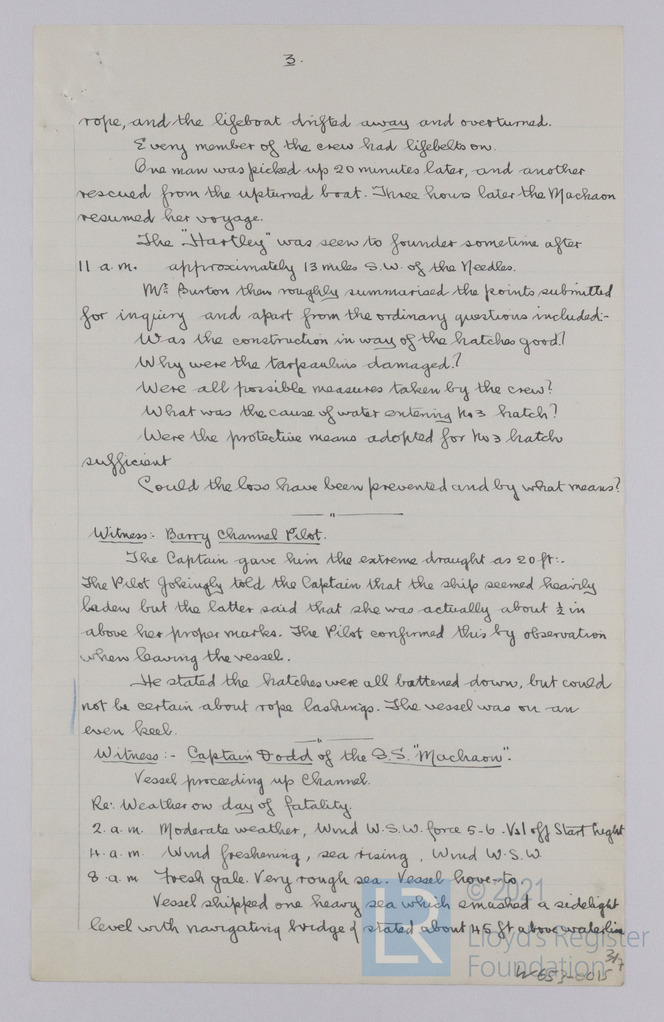 3.
rope, and the lifeboat drifted away and overturned.
Every member of the crew had lifebelts on.
One man was picked up 20 minutes later, and another
rescued from the upturned boat. Three hours later the Machaon
resumed her voyage.
The "Hartley" was seen to founder sometime after
11 a.m. approximately 13 miles S.W. of the Needles.
Mr. Burton then roughly summarised the points submitted
for inquiry and apart from the ordinary questions included:-
Was the construction in way of the hatches good?
Why were the tarpaulins damaged?
Were all possible measures taken by the crew?
What was the cause of water entering No 3 hatch?
Were the protective means adopted for No 3 hatch
sufficient
Could the loss have been prevented and by what means?
"
Witness:- Barry Channel Pilot.
The Captain gave him the extreme draught as 20 ft:-
The Pilot jokingly told the Captain that the ship seemed heavily
laden but the latter said that she was actually about ½ in
above her proper marks. The Pilot confirmed this by observation
when leaving the vessel.
He stated the hatches were all battened down, but could
not be certain about rope lashings. The vessel was on an
even keel.
"
Witness:- Captain Dodd of the S.S. "Machaon".
Vessel proceeding up Channel.
Re: Weather on day of fatality.
2. a.m. Moderate weather, Wind W.S.W. force 5-6. Vsl off Start Light
4. a.m. Wind freshening, sea rising, Wind W.S.W.
8. a.m Fresh gale. Very rough sea. Vessel hove-to
Vessel shipped one heavy sea which smashed a sidelight
level with navigating bridge & stated about 45 ft above waterline
3/7
W653-0015
LR
© 2021
Lloyd's Register
Foundation